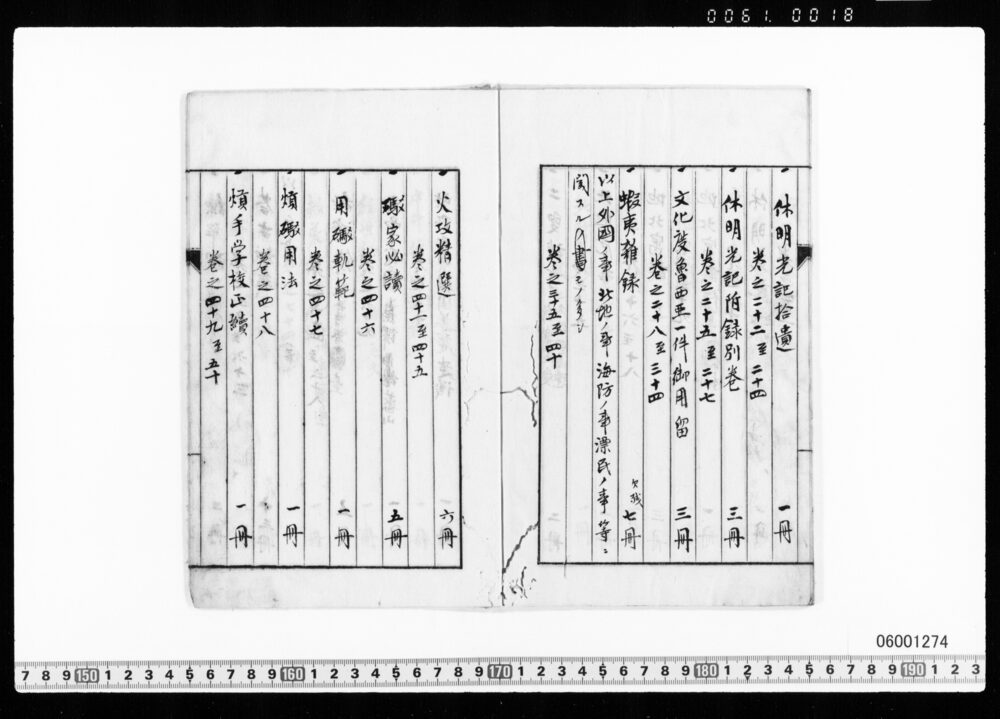 0061.0018
休明光記拾遺 一冊
巻之二十二至二十四
休明光記附録別巻 三冊
巻之二十五至二十七
文化度魯西亜一件御用留 三冊
巻之二十八至三十四
蝦夷雑録 欠残 七冊
以上外國ノ事北地ノ事海防ノ事漂民ノ事等ニ
関スルノ書
巻之三十五至四十
火攻精選 六冊
巻之四十一至四十五
礮家必讀 五冊
巻之四十六
用礮軌範 一冊
巻之四十七
熕礮用法 一冊
巻之四十八
熕手学校正續 一冊
巻之四十九至五十
06001274
7 8 9 150 1 2 3 4 5 6 7 8 9 160 1 2 3 4 5 6 7 8 9 170 1 2 3 4 5 6 7 8 9 180 1 2 3 4 5 6 7 8 9 190 1 2 3